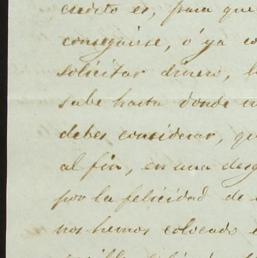 credito es, para que
conseguirse, ó ya co
solicitar dinero, l
sabe hasta donde
debes considerar, qu
al fin, en una desg
por la felicidad de
nos hemos colocado e